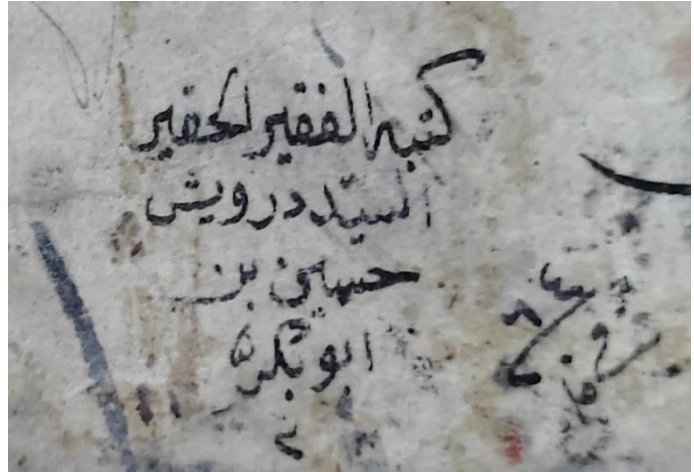 كتبه الفقير الحقير
السيد درويش
حسين بن
ابو بكر